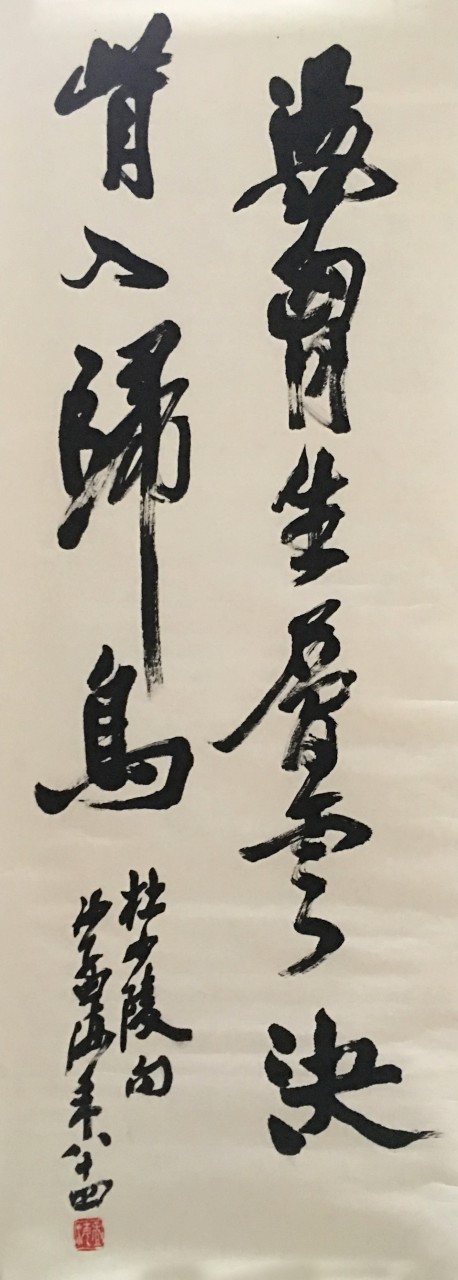 盪胷生層雲決
眥入歸鳥
杜少陵句
沙孟海年八十四